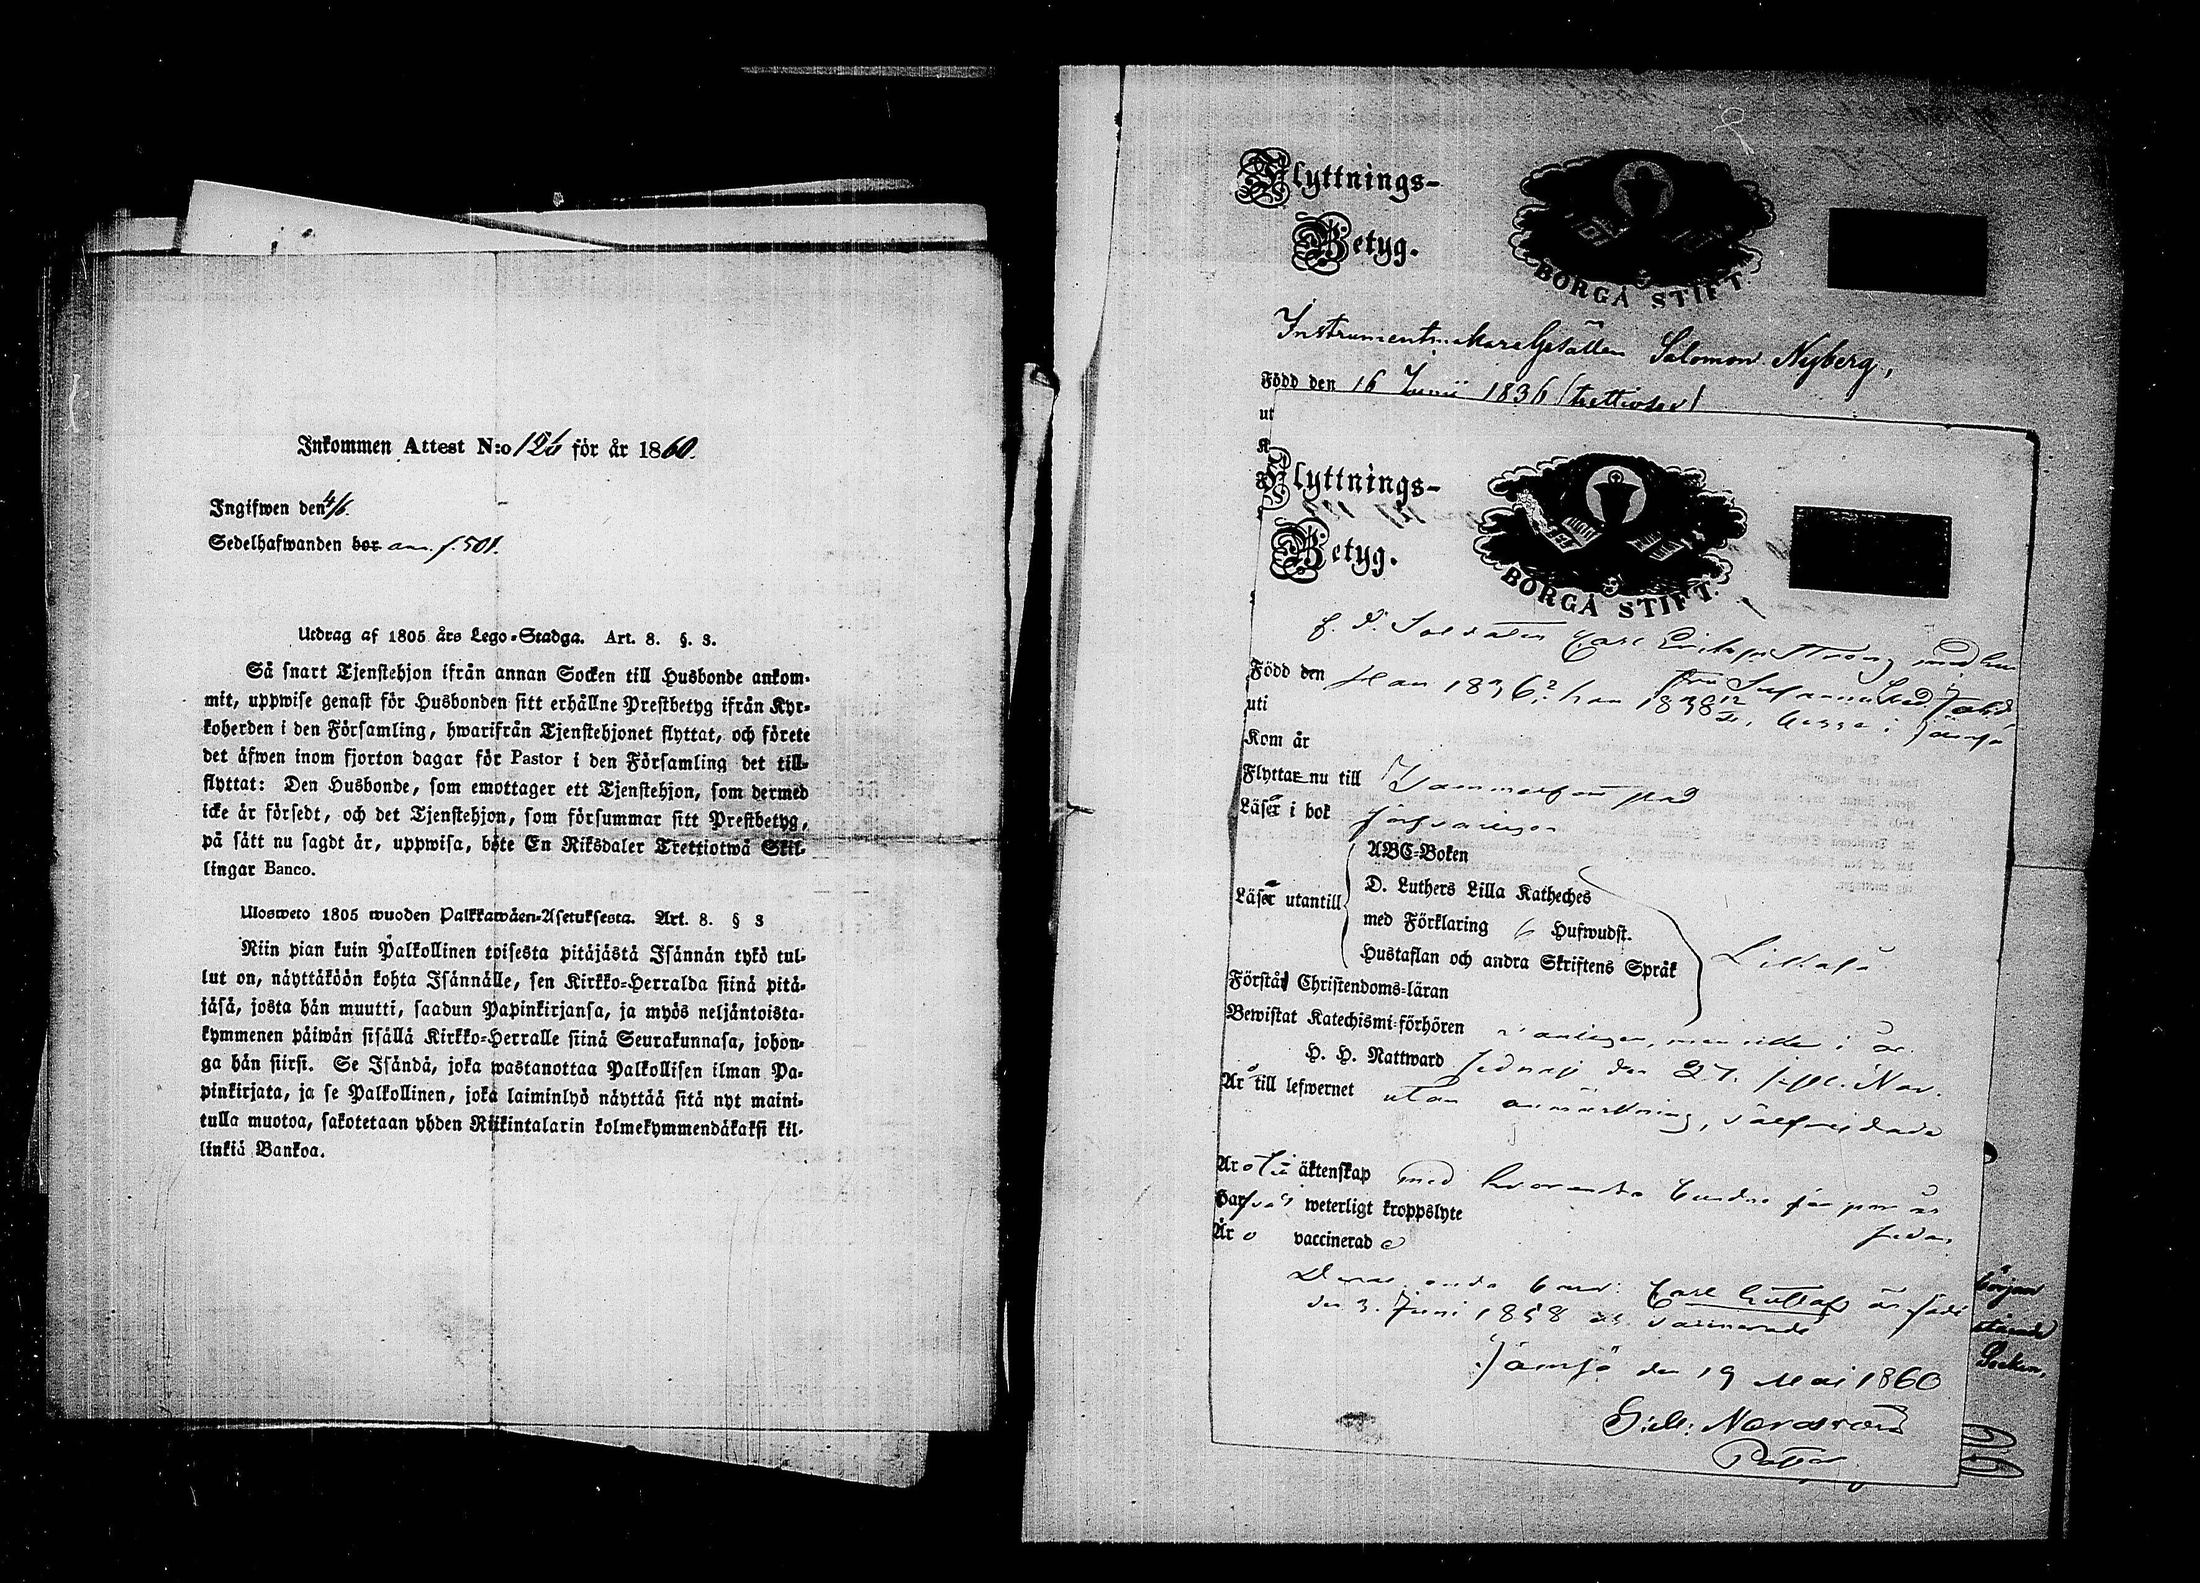 Inkommen Attest N:o 126 för år 1860.
Ingifwen den 4/6.
Sedelhafwanden bor ann. f. 501.
Utdrag af 1805 års Lego-Stadga. Art. 8. §. 3.
Så snart Tjenstehjon ifrån annan Socken till Husbonde ankom-
mit, uppwise genast för Husbonden sitt erhållne Prestbetyg ifrån Kyr-
koherden i den Församling, hwarifrån Tjenstehjonet flyttat, och förete
det äfwen inom fjorton dagar för Pastor i den Församling det till-
flyttat: Den Husbonde, som emottager ett Tjenstehjon, som dermed
icke är försedt, och det Tjenstehjon, som försummar sitt Prestbetyg,
på sätt nu sagdt är, uppwisa, böte En Riksdaler Trettiotwå Skil-
lingar Banco.
Ulosweto 1805 wuoden Palkkawäen-Asetuksesta. Art. 8. § 3
Niin pian kuin Palkollinen toisesta pitäjästä Isännän tykö tul-
lut on, näyttäköön kohta Isännälle, sen Kirkko-Herralda siinä pitä-
jäsä, josta hän muutti, saadun Papinkirjansa, ja myös neljäntoista-
kymmenen päiwän sisällä Kirkko-Herralle siinä Seurakunnasa, johon-
ga hän siirsi. Se Isändä, joka wastanottaa Palkollisen ilman Pa-
pinkirjata, ja se Palkollinen, joka laiminlyö näyttää sitä nyt maini-
tulla muotoa, sakotetaan yhden Riikintalarin kolmekymmendäkaksi kil-
linkiä Bankoa.
Flyttnings-
Betyg.
BORGÅ STIFT.
Instrumentmakaregesällen Salomon Nyberg,
Född den 16 Junii 1836 (trettiosex)
ut
Flyttnings-
Betyg.
BORGÅ STIFT.
f. d. Soldaten Carl Strong med
Född den Han 1836, hon 1838
uti begge i Jämsä
Kom år
Flyttar nu till Tammerfors stad
Läser i bok försvarligen
ABC-Boken
D. Luthers Lilla Katheches
Läser utantill med Förklaring 6 Hufwudst.
Hustaflan och andra Skriftens Språk
Förstår Christendoms-läran
Bewistat Katechismi-förhören
H. H. Nattward sednast den
Är till lefwernet utan anmärkning, välfrejdade
Äro i äktenskap med hvarandra
Har weterligt kroppslyte
Äro vaccinerade
Deras enda barn: Carl Gustaf är född
den 3. Juni 1858 vaccinerad
Jämsä den 19 Maj 1860
Nordström
Pastor
början
Socken.